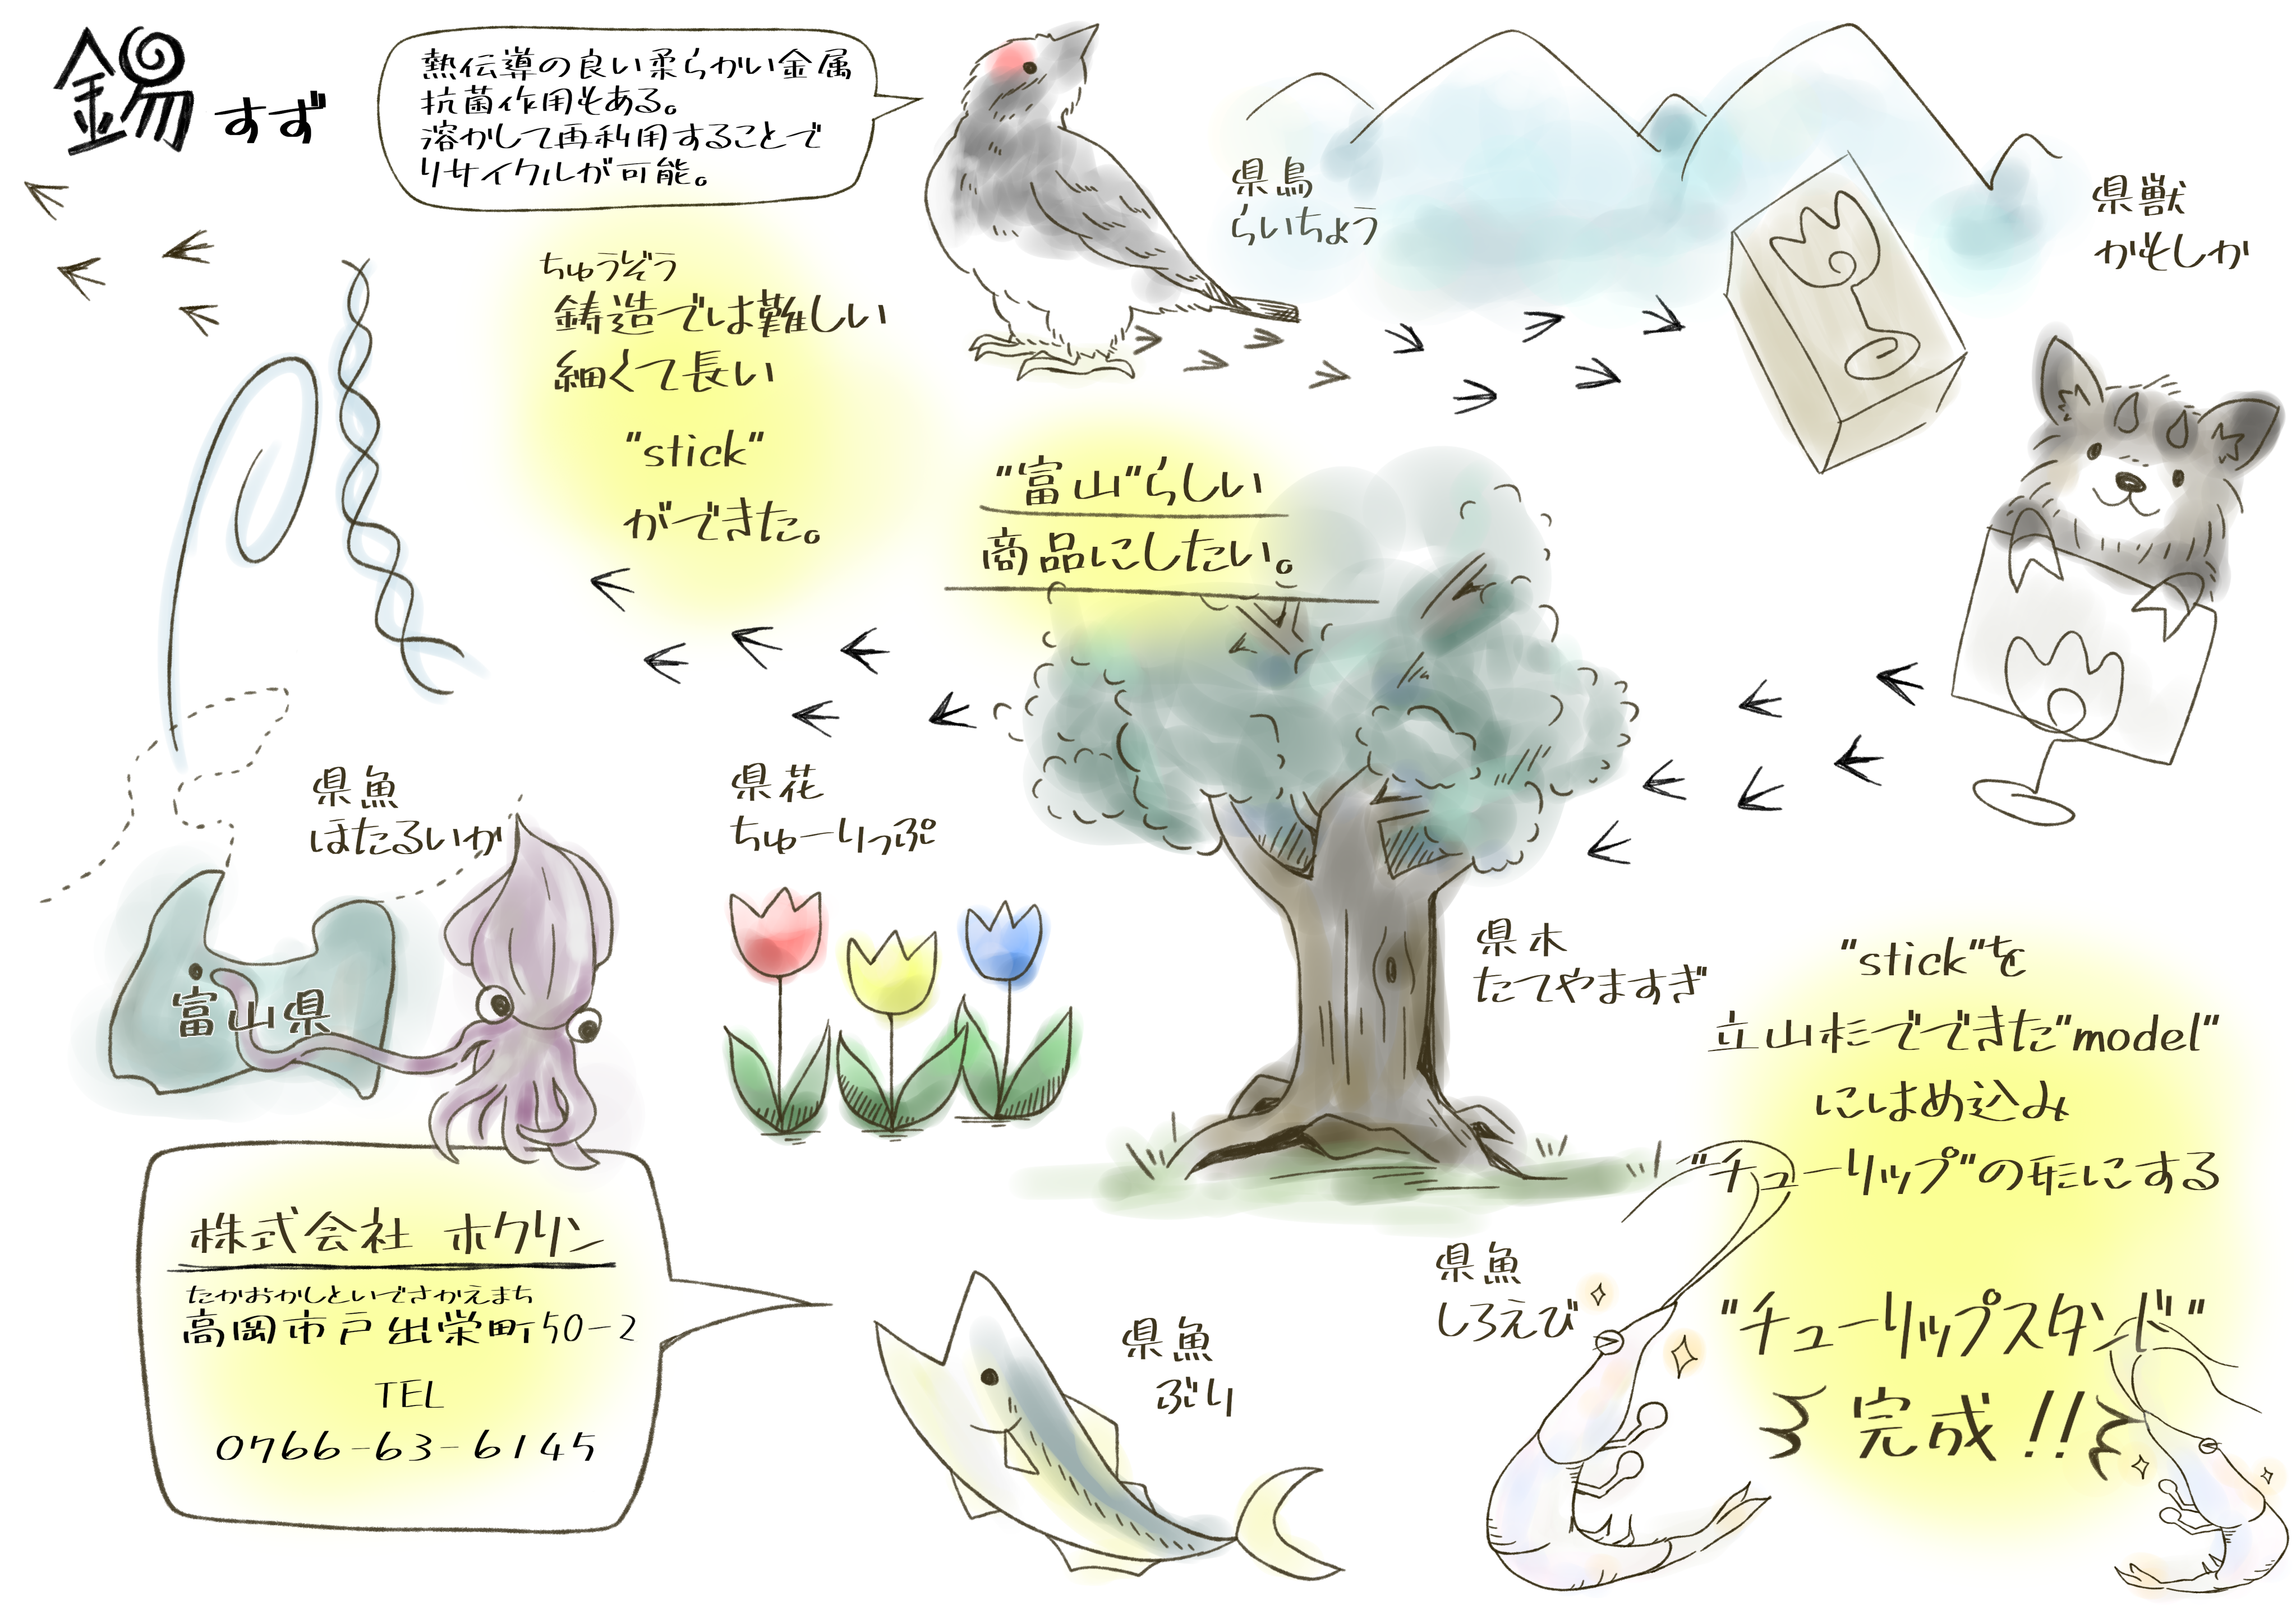 錫 すず
熱伝導の良い柔らかい金属
抗菌作用もある。
溶かして再利用することで
リサイクルが可能。
県鳥
らいちょう
県獣
かもしか
ちゅうぞう
鋳造では難しい
細くて長い
"stick"
ができた。
"富山"らしい
商品にしたい。
県魚
ほたるいか
富山県
県花
ちゅーりっぷ
県木
たてやますぎ
"stick"を
立山杉でできた"model"
にはめ込み
"チューリップ"の形にする
"チューリップスタンド"
完成!!
株式会社 ホクリン
たかおかしといでさかえまち
高岡市戸出栄町50-2
TEL
0766-63-6145
県魚
ぶり
県魚
しろえび